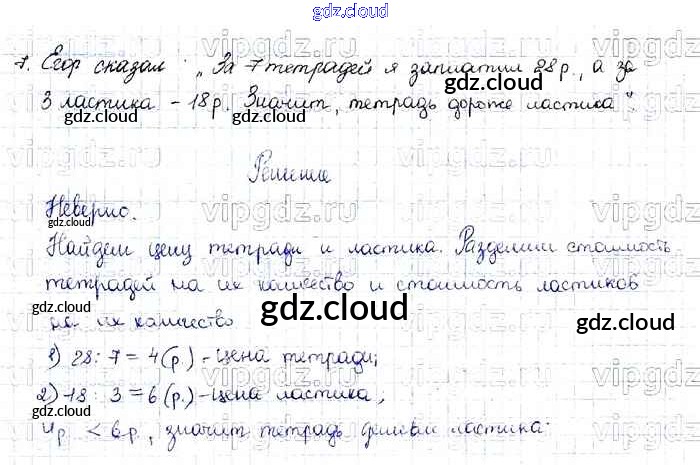 gdz.cloud
7. Егор сказал: „За 7 тетрадей я заплатил 28 р., а за
3 ластика - 18 р. Значит, тетрадь дороже ластика".
Решение
Неверно.
Найдем цену тетради и ластика. Разделим стоимость
тетрадей на их количество и стоимость ластиков
на их количество
1) 28 : 7 = 4 (р.) - цена тетради;
2) 18 : 3 = 6 (р.) - цена ластика,
4 р. < 6 р., значит тетрадь дешевле ластика.